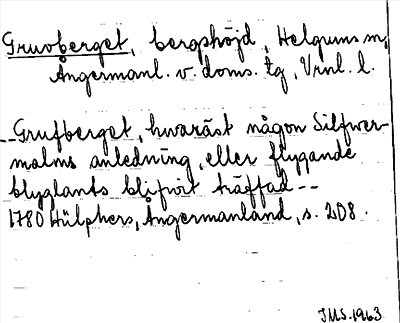 Gruvberget, bergshöjd, Helgums sn,
Ångermanl. v. doms. tg, Vrnl. l.
--Grufberget, hwaräst någon Silfwer-
malms anledning, eller flygande
blyglants blifvit träffad--
1780 Hülphers, Ångermanland, s. 208.
IMS. 1963